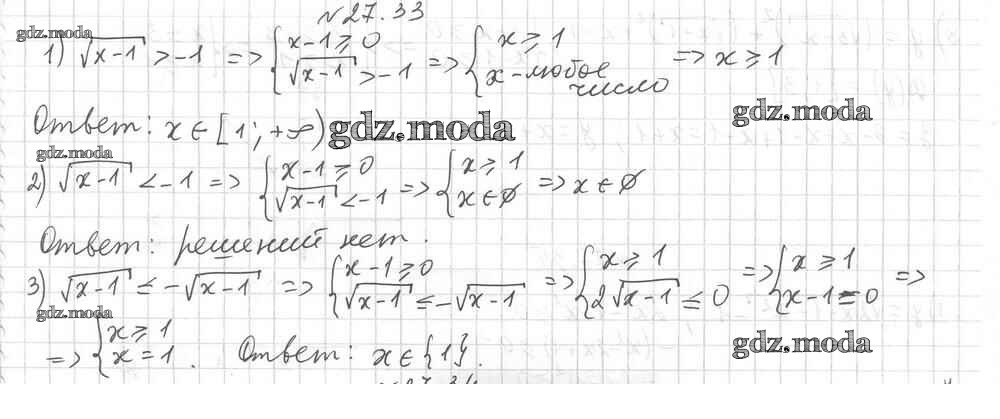 №27.33
gdz.moda
1) √(x-1) > -1 => { x-1 ≥ 0; √(x-1) > -1 => { x ≥ 1; x - любое число => x ≥ 1
gdz.moda
Ответ: x ∈ [1; +∞)
gdz.moda
gdz.moda
2) √(x-1) < -1 => { x-1 ≥ 0; √(x-1) < -1 => { x ≥ 1; x ∈ ∅ => x ∈ ∅
Ответ: решений нет.
3) √(x-1) ≤ -√(x-1) => { x-1 ≥ 0; √(x-1) ≤ -√(x-1) => { x ≥ 1; 2√(x-1) ≤ 0 => { x ≥ 1; x-1 = 0 =>
gdz.moda
=> { x ≥ 1; x = 1. Ответ: x ∈ {1}.
gdz.moda